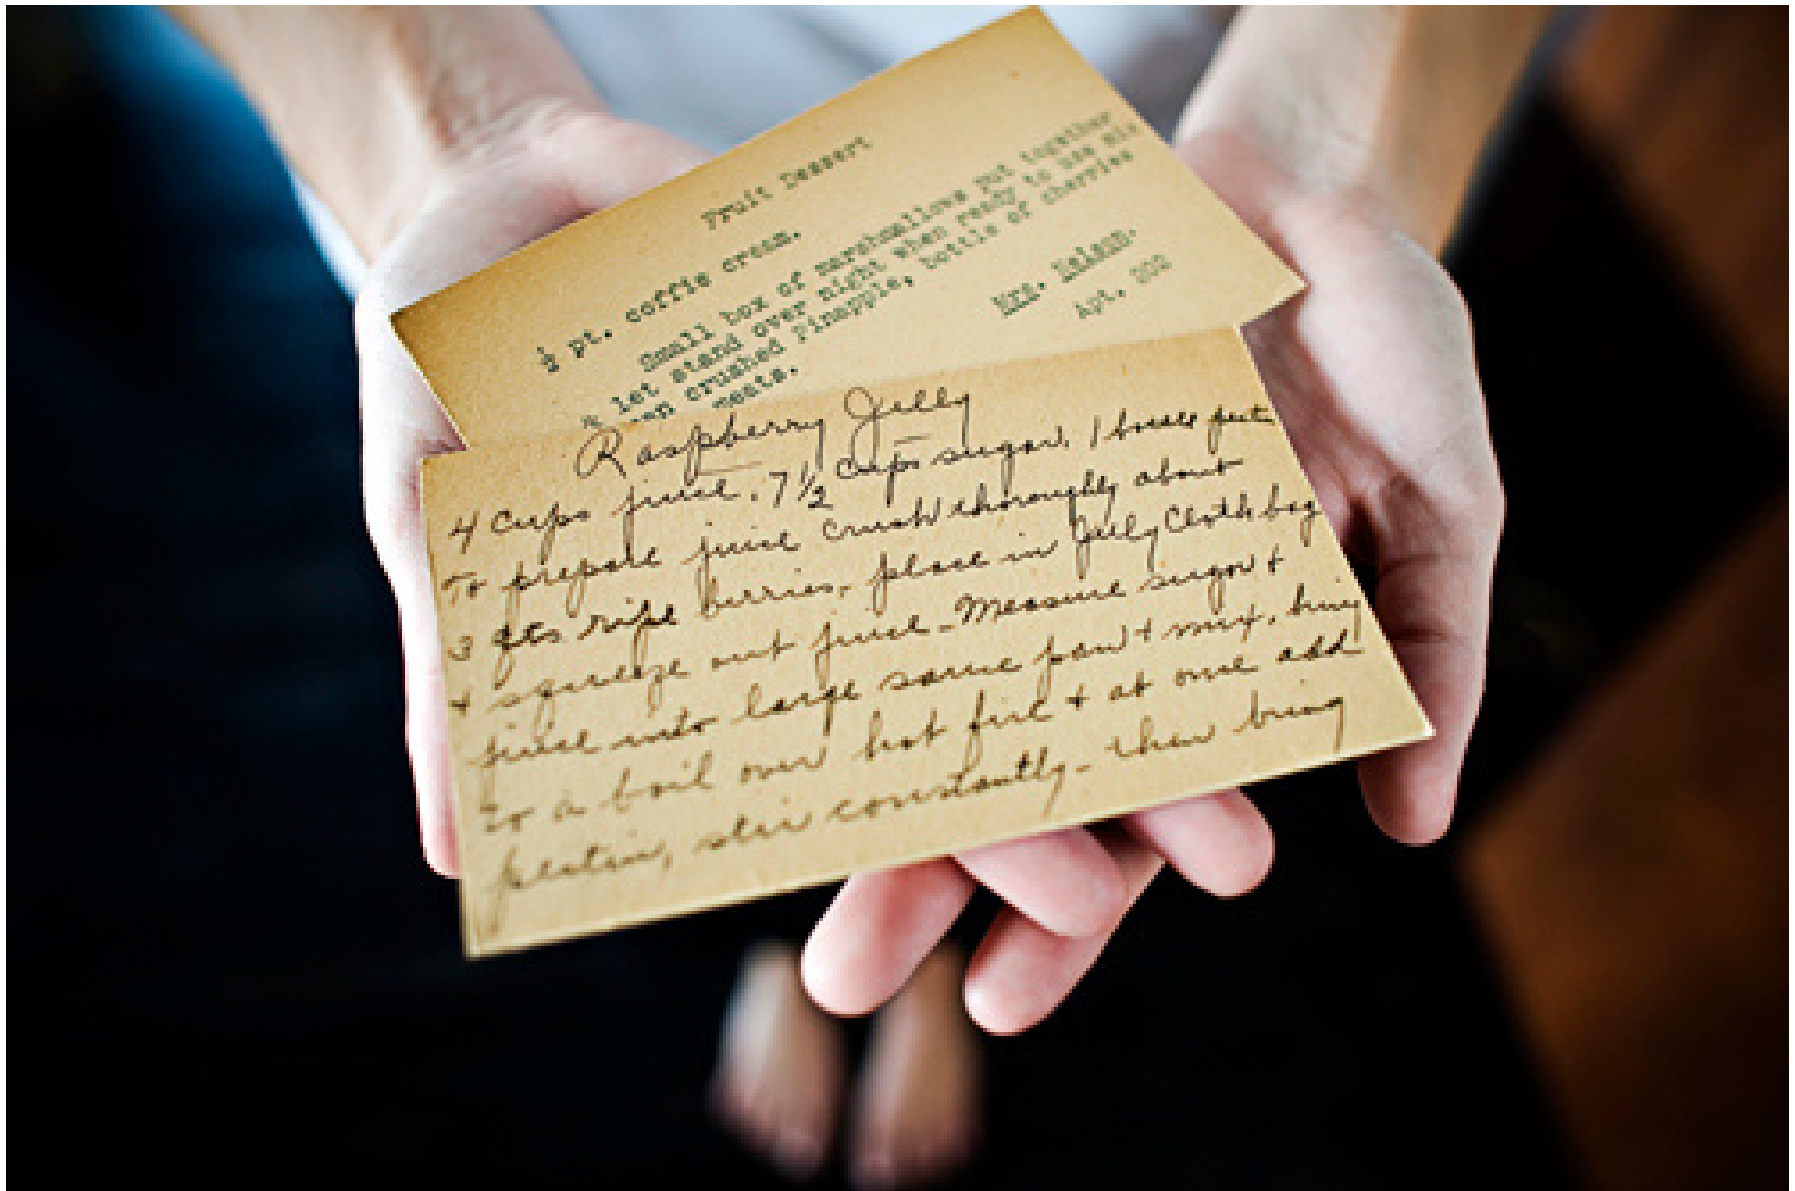 Fruit Dessert
½ pt. coffie cream.
Small box of marshmallows put together
& let stand over night when ready to use mix
crushed Pinapple, bottle of cherries
meats.
Mrs. Nelson.
Apt. 202
Raspberry Jelly
4 cups juice. 7½ cups sugar. 1 bottle
To prepare juice crush thoroughly about
3 qts ripe berries. place in Jelly Cloth bag
+ squeeze out juice - Measure sugar +
juice into large sauce pan + mix. bring
to a boil over hot fire + at once add
pectin, stir constantly - then bring